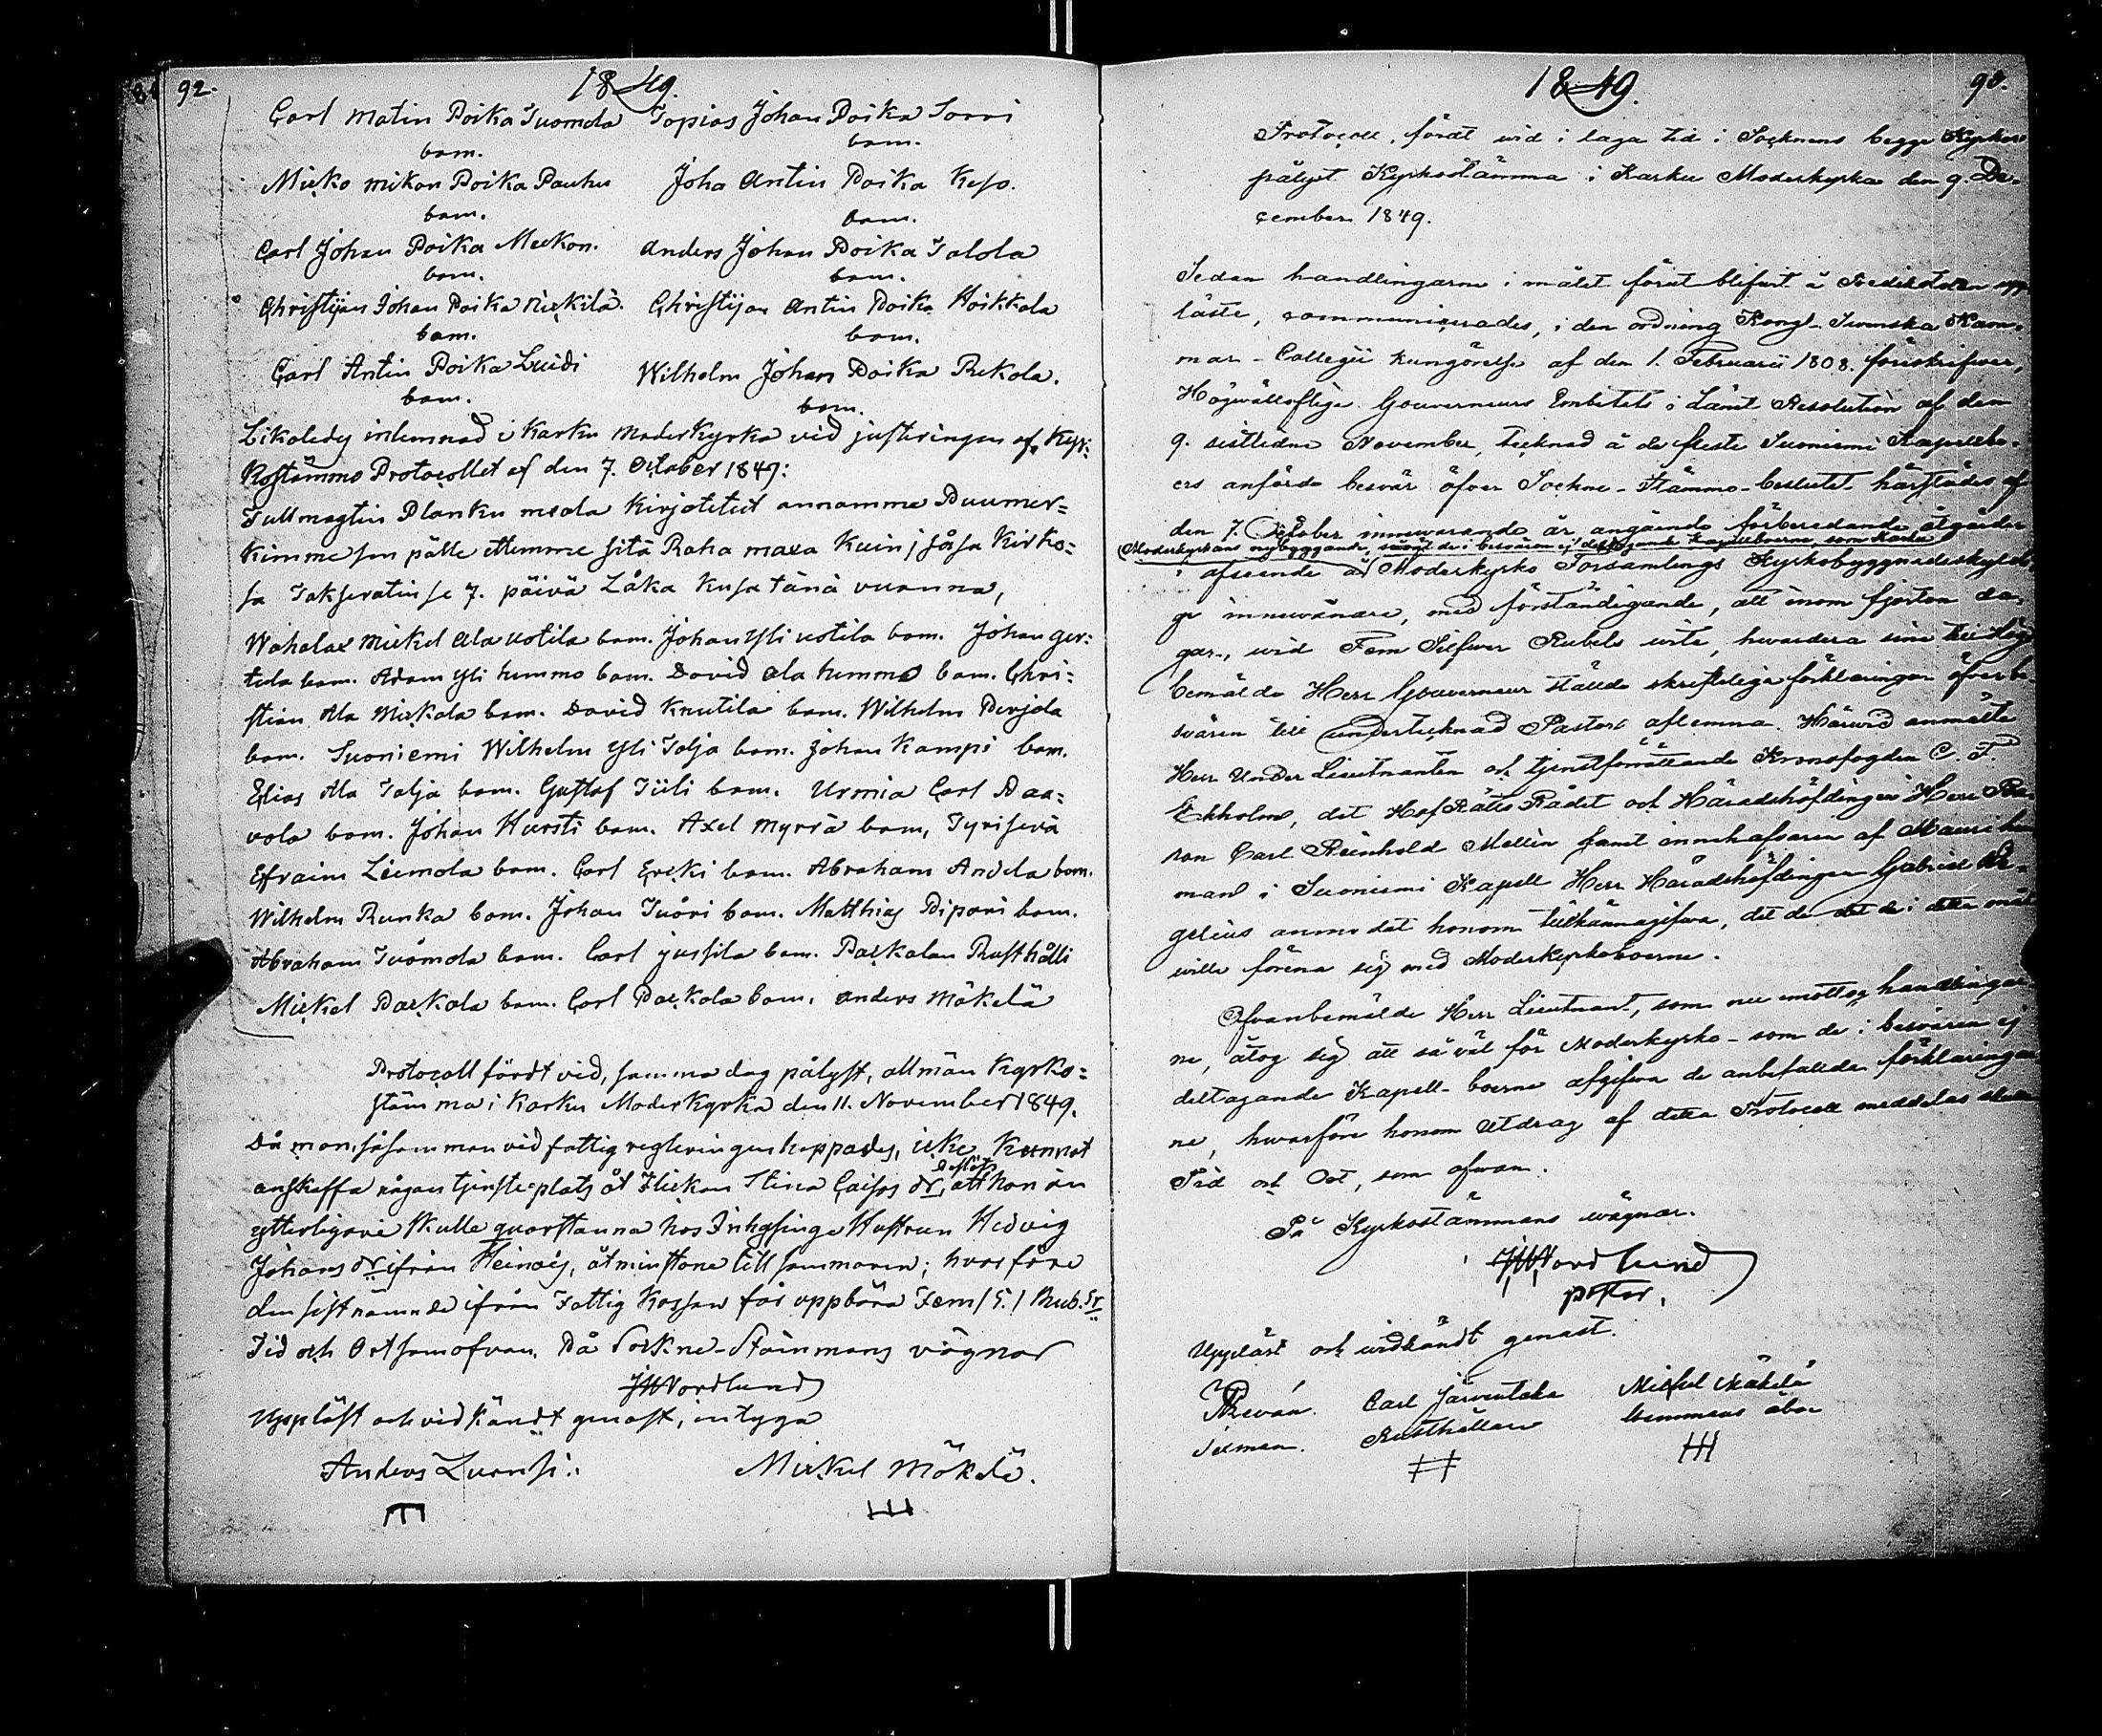 92.
1849.
Carl Matin Poika Tuomola Topias Johan Poika Sorri
bom. bom.
Micko mikon Poika Pauhu Joha Antin Poika Keso.
bom. bom.
Carl Johan Poika Meckon. Anders Johan Poika Talola
bom. bom.
Christijan Johan Poika Nickilä. Christijan Antin Poika Hoikkola
bom. bom.
Carl Antin Poika Luidi Wilhelm Johan Poika Rekola.
bom. bom.
Likaledes inlemnad i Karku Moderkyrka vid justeringen af Kyr=
kostämmo Protocollet af den 7. October 1849:
Tullmagtin Planku meda Kirjotetut annamme Puumer=
kimme sen pälle ettemme sitä Raha maxa Kuin j såsa Kirko=
sa Takseratin se 7. päivä Låka Kusa tänä vuonna,
Wahalax Mickel Ala uotila bom. Johan Yli uotila bom. Johan ger=
tula bom. Adam Yli hummo bom. David ala hummo bom. Chri=
stian Ala Mickola bom. David Knutila bom. Wilhelm Perjola
bom. Suoniemi Wilhelm Yli Talja bom. Johan Kampi bom.
Elias Ala Talja bom. Gustaf Tiili bom. Urmia Carl Paa=
vola bom. Johan Hursti bom. Axel Myrrä bom, Tyrisevä
Efraim Liemola bom. Carl Ercki bom. Abraham Andela bom.
Wilhelm Runka bom. Johan Tuöri bom. Matthias Pipari bom.
Abraham Tuomola bom. Carl jussila bom. Packalan Rusthålli
Mickel Packala bom. Carl Packala bom. Anders Mäkelä
Protocoll fördt vid, samma dag pålyst, allmän Kyrko=
stämma i Karku Moderkyrka den 11. November 1849.
Då man, såsom man vid fattig regleringen hoppades, icke kunnat
anskaffa någon tjensteplats åt Flickan Stina Caisas dr, beslöts att hon än
ytterligare skulle quarstanna hos Inhysinge Hustrun Hedvig
Johans dr ifrån Heinois, åtminstone till sommaren; hvarföre
den sistnämnde ifrån Fattig Kassan får uppbära Fem / 5. / Rub. Sr
Tid och Ort som ofvan. På Sockne-Stämmans vägnar
JWNordlund
Uppläst och vidkändt genast, intyga
Anders Luensi. Mickel Mäkelä.
1849.
Protocoll, fördt wid i laga tid i Socknens begge Kyrkor
pålyst Kyrkostämma i Karku Moderkyrka den 9. De-
cember 1849.
Sedan handlingarne i målet först blifwit å Predikstolen upp-
läste, communicerades, i den ordning Kongl. Swenska Kam-
mar-Collegii kungörelse af den 1. Februarii 1808. föreskrifwer,
Högwällofliga Gouverneurs Embetets i Länet Resolution af den
9. sistledne November, tecknad å de fleste Suoniemi Kapellbo-
ers anförde beswär öfver Sockne-Stämmo-beslutet härstädes af
den 7. October innewarande år, angående förberedande åtgärder
Moderkyrkans nybyggande, såwäl de i beswären ej deltagande Kapellboerne, som Karku
i afseende å Moderkyrko Församlings Kyrkobyggnadsskyldi-
ge innewånare, med förständigande, att inom fjorton da-
gar, wid Fem Silfwer Rubels wite, hwardera sine till Hög-
bemälde Herr Gouverneur ställde skriftliga förklaringar öfver be-
swären till undertecknad Pastor aflemna. Härwid anmälte
Herr Under Lieutnanten och tjenstförrättande Kronofogden C. F.
Ekholm, det HofRätts Rådet och Häradshöfdingen Herr Ba-
ron Carl Reinhold Mellin samt innehafvaren af
man i Suoniemi Kapell Herr Häradshöfdingen Gabriel
gelius anmodat honom tillkännagifwa, det de i detta mål
wille förena sig med Moderkyrkoboerne.
Ofvanbemälde Herr Lieutnant, som nu emottog handlingar-
ne, åtog sig att så väl för Moderkyrko- som de i beswären ej
deltagande Kapell-boerne afgifwa de anbefallda förklaringar-
ne, hwarföre honom Utdrag af detta Protocoll meddelas skulle
Tid och Ort, som ofwan.
På Kyrkostämmans wägnar.
JWNordlund
pastor.
Uppläst och widkändt genast.
Carl Järventaka Michel Mäkelä
Sexman. Rusthållare Hemmans åbo